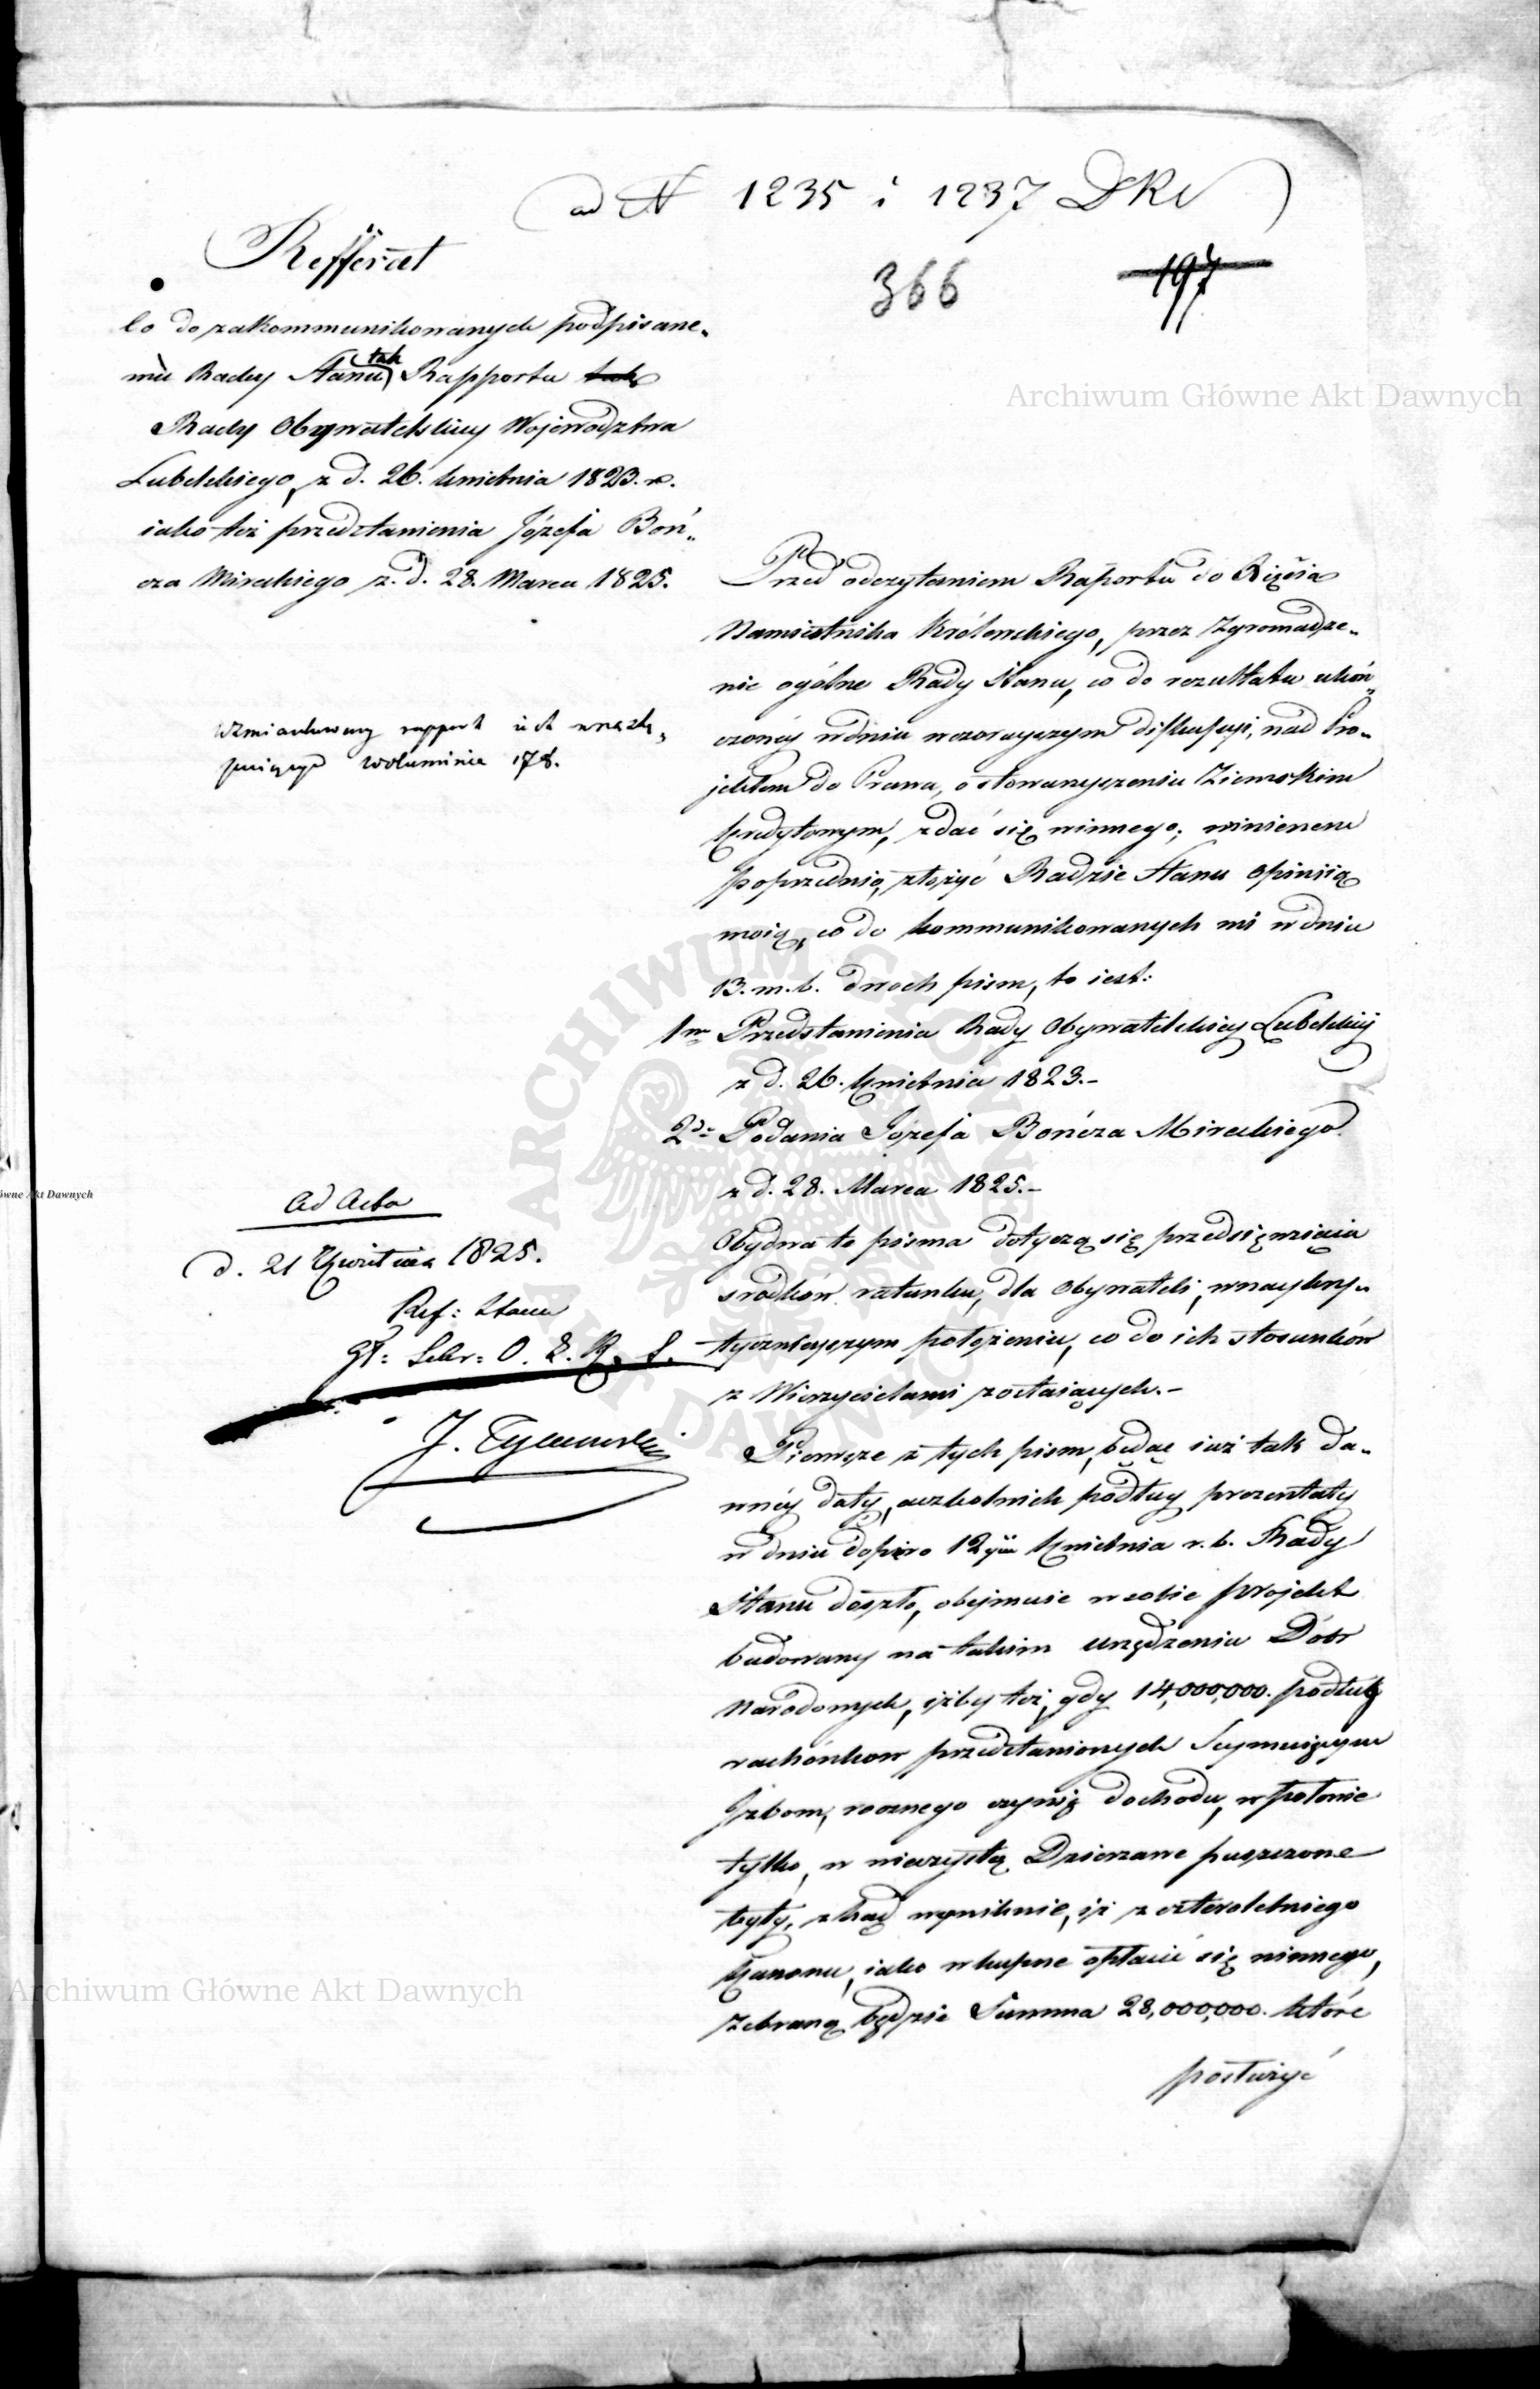 ad N 1235 i 1237 DRS
366
197
Refferat
Co do zakommunikowanych podpisane„
mu Rady Stanu tak Rapportu tak
Rady Obywatelskiey Wojewodztwa
Lubelskiego, z d. 26. kwietnia 1823. r.
iako też przedstawienia Józefa Boń„
cza Mireckiego z. d. 28. Marca 1825.
Wzmiankowany rapport iest w nastę„
puiącym woluminie 178.
Ad Acta
d. 21 Kwietnia 1825.
Ref: Stanu
J. Tymowski
Przed odczytaniem Raportu do Xięcia
Namiestnika Królewskiego, przez Zgromadze„
nie ogólne Rady Stanu, co do rezultatu ukoń„
czoney w dniu wczorayszym diskussyi, nad Pro„
jektem do Prawa, o stowarzyszeniu Ziemskim
kredytowym, zdać się winnego; winienem
poprzednio, złożyć Radzie Stanu opiniią
moią, co do kommunikowanych mi w dniu
13. m. b. dwoch pism, to iest:
1mo Przedstawienia Rady Obywatelskiey Lubelskiey
z d. 26. kwietnia 1823.-
2do Podania Józefa Bończa Mireckiego
z d. 28. Marca 1825.-
Obydwa te pisma dotyczą się przedsięwzięcia
srodków ratunku, dla Obywateli, w naykry„
tycznieyszym położeniu, co do ich stosunków
z Wierzycielami zostaiących.-
Pierwsze z tych pism, będąc iuż tak da„
wnéy daty, aczkolwiek podług prezentaty
w dniu dopiero 12ym kwietnia r. b. Rady
Stanu doszło, obejmuie w sobie projekt
budowany na takim urządzeniu Dóbr
Narodowych, iżby też, gdy 14,000,000. podług
rachónkow przedstawionych Seymuiącym
Izbom, rocznego czynią dochodu, w połowie
tylko, w wieczystą Dzierzawe puszczone
były, zkąd wyniknie, iż z czteroletniego
kanonu, iako wkupne opłacić się winnego,
zebraną będzie Summa 28,000,000. które
posłużyć
Archiwum Główne Akt Dawnych
ówne Akt Dawnych
ARCHIWUM GŁÓWNE AKT DAWNYCH
Archiwum Główne Akt Dawnych